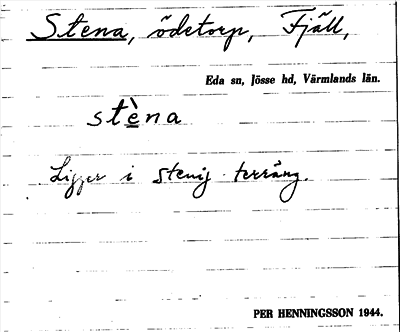 Stena, ödetorp, Fjäll,
Eda sn, Jösse hd, Värmlands län.
stèna
Ligger i stenig terräng.
PER HENNINGSSON 1944.